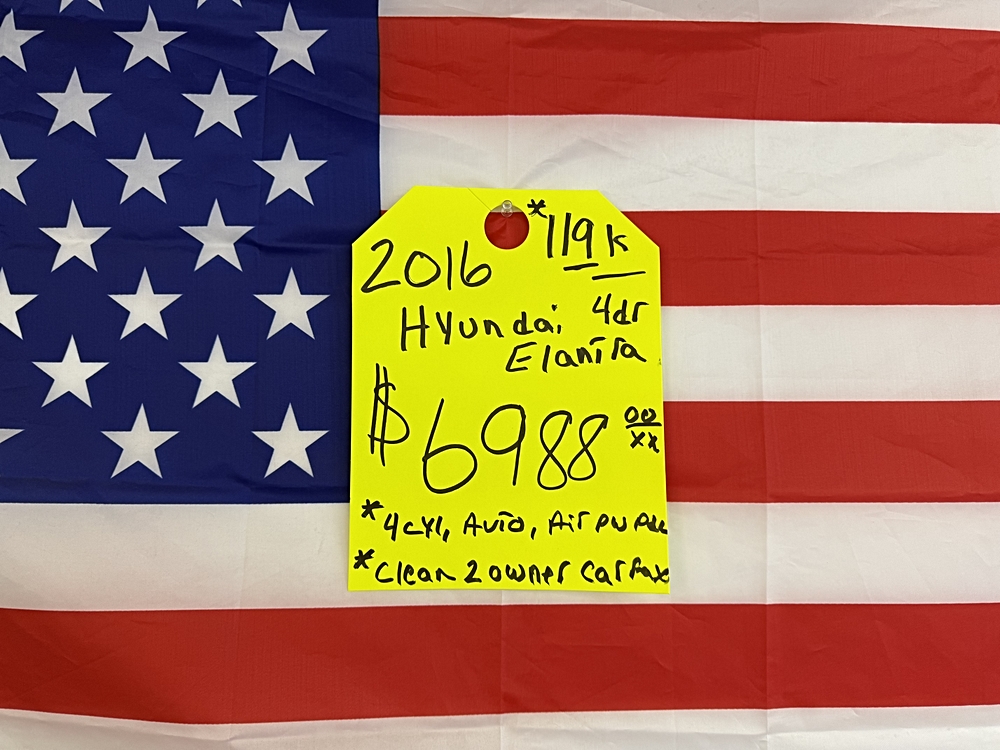 *119K
2016
Hyundai 4dr
Elantra
$6988 00/xx
*4cyl, Auto, Air PW PDL
*Clean 2 owner Carfax